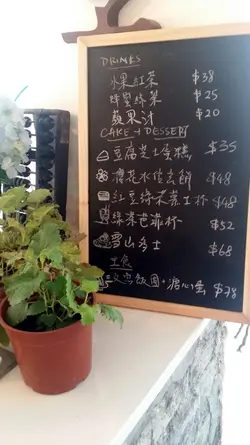 DRINKS
水果紅茶 $38
蜂蜜綠茶 $25
蘋果汁 $20
CAKE + DESSERT
豆腐芝士蛋糕 $35
櫻花水信玄餅 $48
紅豆綠茶芝士杯 $48
綠茶芭菲杯 $52
雪山多士 $68
主食
飯團+溏心蛋 $78